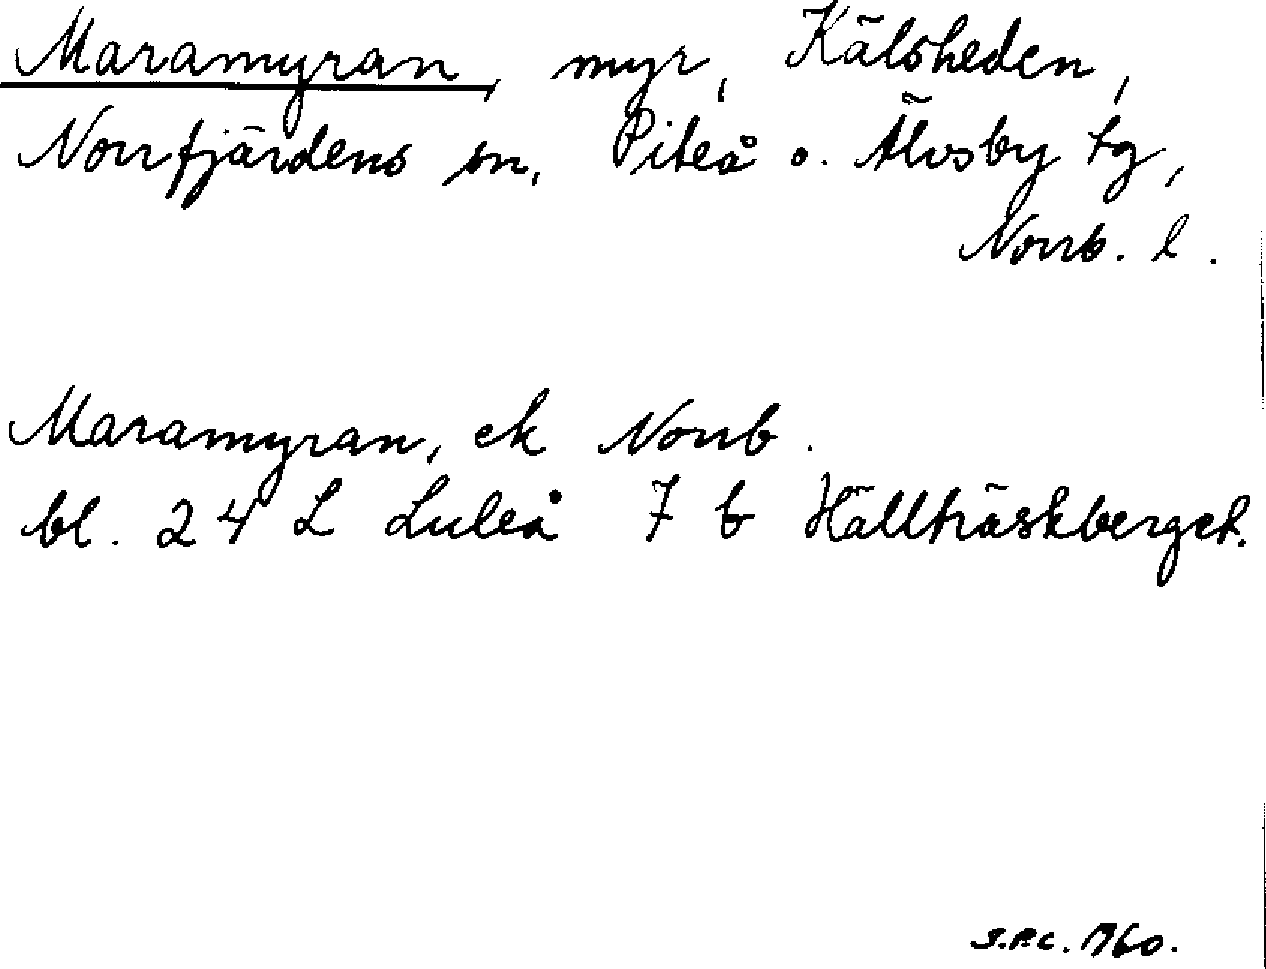 Maramyran, myr, Kälsheden,
Norrfjärdens sn, Piteå o. Älvsby tg,
Norrb. l.
Maramyran, ek Norrb.
bl. 24 L Luleå 7 b Hällträskberget.
1960.